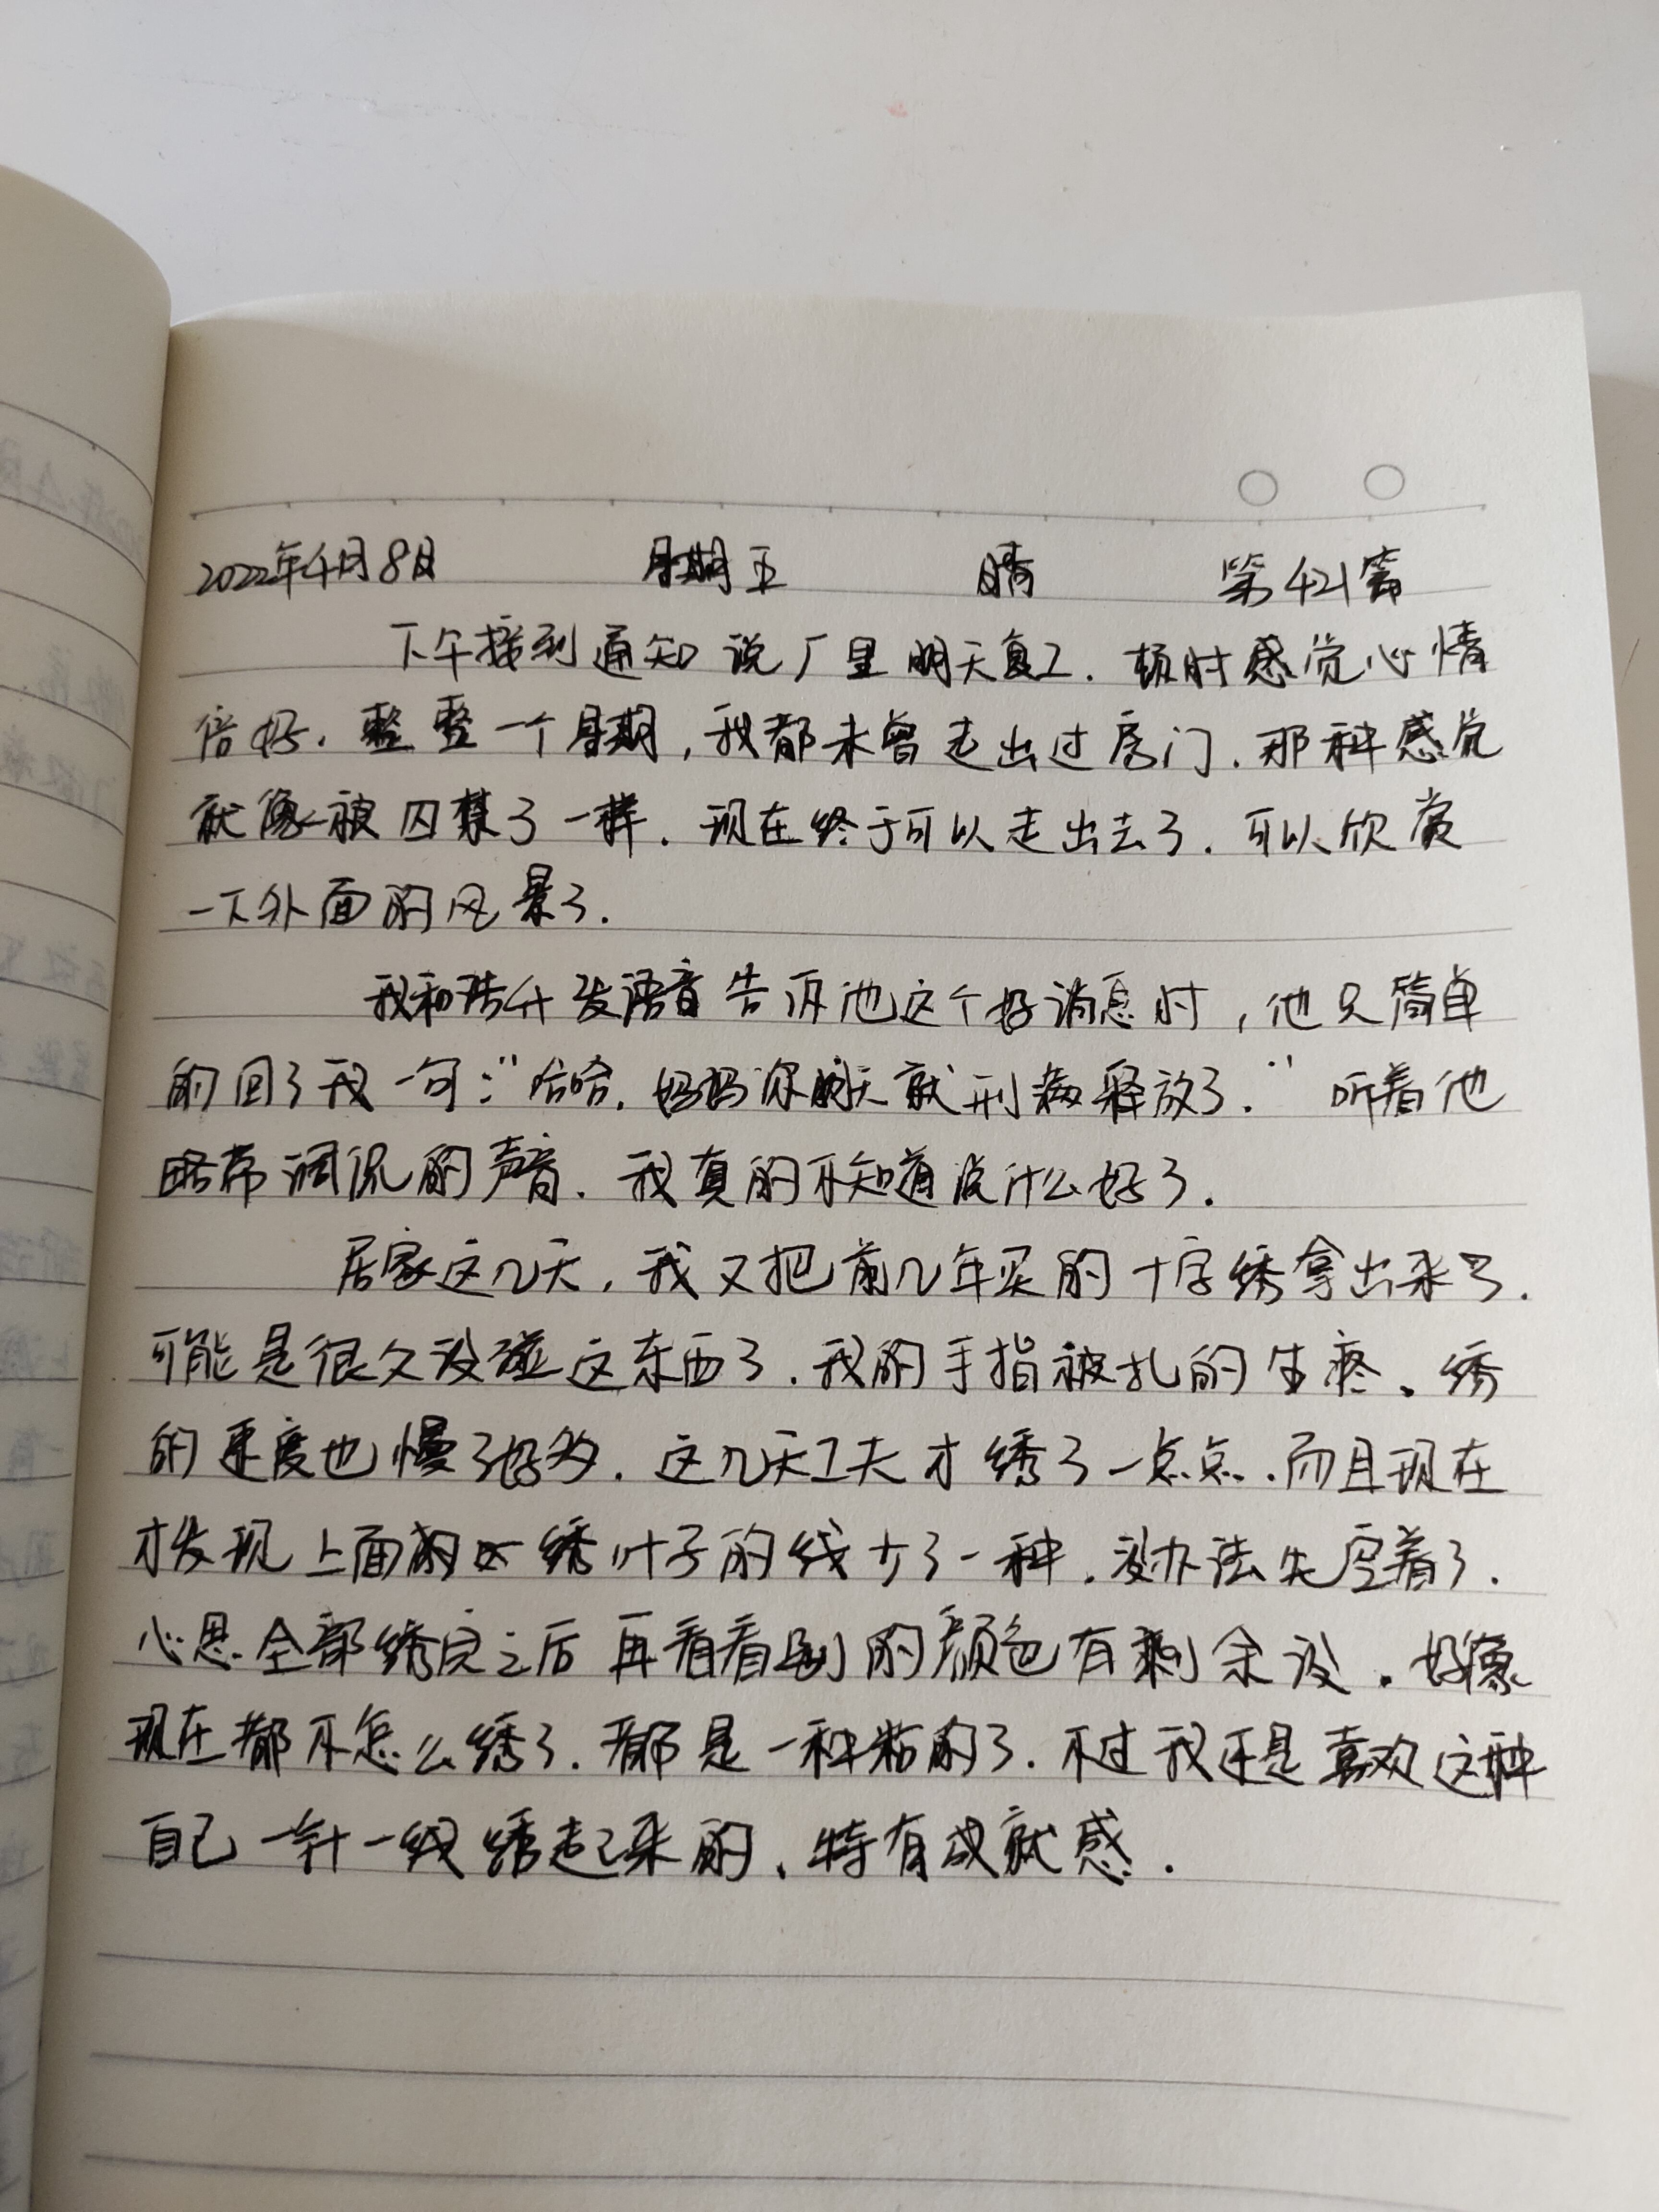 2022年4月8日 星期五 晴 第421篇
下午接到通知说厂里明天复工.顿时感觉心情
倍好.整整一个星期,我都未曾走出过房门.那种感觉
就像被囚禁了一样.现在终于可以走出去了.可以欣赏
一下外面的风景了.
我和浩升发语音告诉他这个好消息时,他只简单
的回了我一句:"哈哈.妈妈你明天就刑满释放了."听着他
略带调侃的声音.我真的不知道说什么好了.
居家这几天,我又把前几年买的十字绣拿出来了.
可能是很久没碰这东西了.我的手指被扎的生疼.绣
的速度也慢了好多.这几天工夫才绣了一点点.而且现在
才发现上面的 绣叶子的线少了一种.没办法先空着了.
心思全部绣完之后再看看别的颜色有剩余没.好像
现在都不怎么绣了.都是一种粘的了.不过我还是喜欢这种
自己一针一线绣起来的、特有成就感.